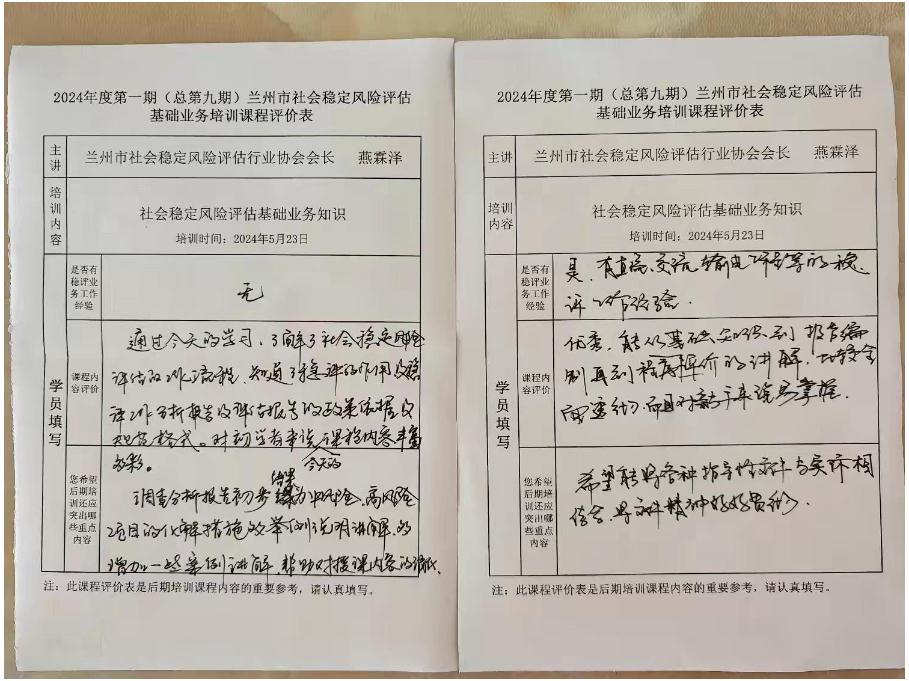 2024年度第一期（总第九期）兰州市社会稳定风险评估
基础业务培训课程评价表
主讲
兰州市社会稳定风险评估行业协会会长 燕霖泽
培训内容
社会稳定风险评估基础业务知识
培训时间：2024年5月23日
学员填写
是否有稳评业务工作经验
无
课程内容评价
通过今天的学习，了解了社会稳定风险
评估的工作流程，知道了稳评的作用及稳
评工作分析报告及评估报告的政策依据及
规范格式。对初学者来说今天的课程内容丰富
多彩。
您希望后期培训还应突出哪些重点内容
调查分析报告初步结果为中风险、高风险
项目的化解措施及举例说明讲解，
增加一些案例讲解，帮助对授课内容的
注：此课程评价表是后期培训课程内容的重要参考，请认真填写。
2024年度第一期（总第九期）兰州市社会稳定风险评估
基础业务培训课程评价表
主讲
兰州市社会稳定风险评估行业协会会长 燕霖泽
培训内容
社会稳定风险评估基础业务知识
培训时间：2024年5月23日
学员填写
是否有稳评业务工作经验
有直流、交流输电等的稳
评工作经验．
课程内容评价
优秀，
制再到程序的讲解，比较全
面
您希望后期培训还应突出哪些重点内容
希望能将各种指导性文件与实际相
结合，
注：此课程评价表是后期培训课程内容的重要参考，请认真填写。